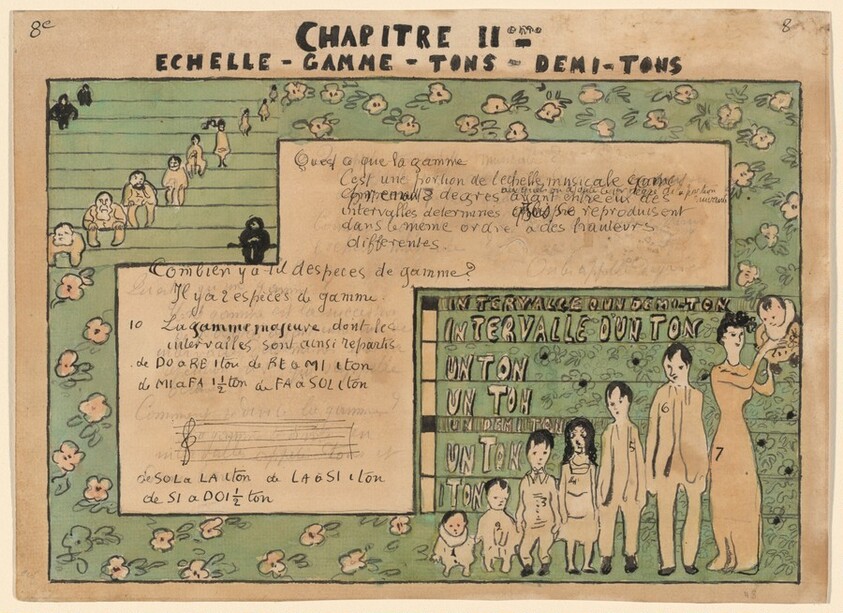 8e
8
CHAPITRE II eme
ECHELLE - GAMME - TONS - DEMI-TONS
Quest ce que la gamme
C'est une portion de l'echelle musicale
comprenant 8 degres ayant entre eux des
intervalles determines se reproduisent
dans le meme ordre a des hauteurs
differentes.
Combien y a til despeces de gamme?
Il y a 2 espèces de gamme.
10 La gamme majeure dont les
intervalles sont ainsi repartis
de DO a RE 1 ton de RE a MI 1 ton
de MI a FA 1 1/2 ton de FA a SOL 1 ton
de SOL a LA 1 ton de LA a SI 1 ton
de SI a DO 1 1/2 ton
INTERVALLE D'UN DEMI-TON
INTERVALLE D'UN TON
UN TON
UN TON
UN DEMI TON
UN TON
1 TON
1
2
3
4
5
6
7